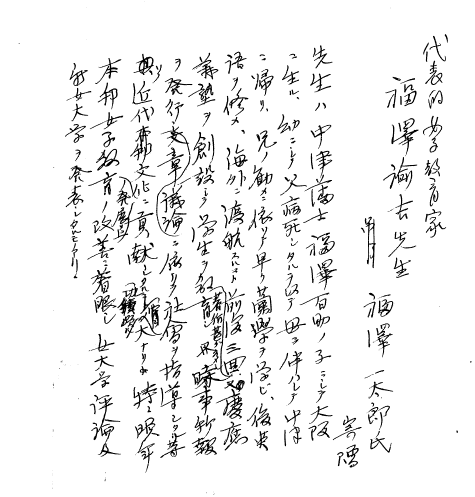 代表的女子教育家
福澤諭吉先生
福澤一太郎氏
寄贈
先生ハ中津藩士福澤百助ノ子ニシテ大阪
ニ生ル、幼ニシテ父病死シタルヲ以テ母ニ伴ハレテ中津
ニ帰リ、兄ノ勧メニ依リテ早ク蘭学ヲ学ビ、後英
語ヲ修メ、海外ニ渡航スルコト前後三回慶應
義塾ヲ創設シテ学生ヲ教育シ又時事新報
ヲ発行シ文章議論ニ依リテ社会ヲ指導シタル等
近代ノ文化ニ貢献シ 大ナリ 特ニ晩年
本邦女子教育ノ改善ニ着眼シ女大学評論及
新女大学ヲ発表シタルコトアリ